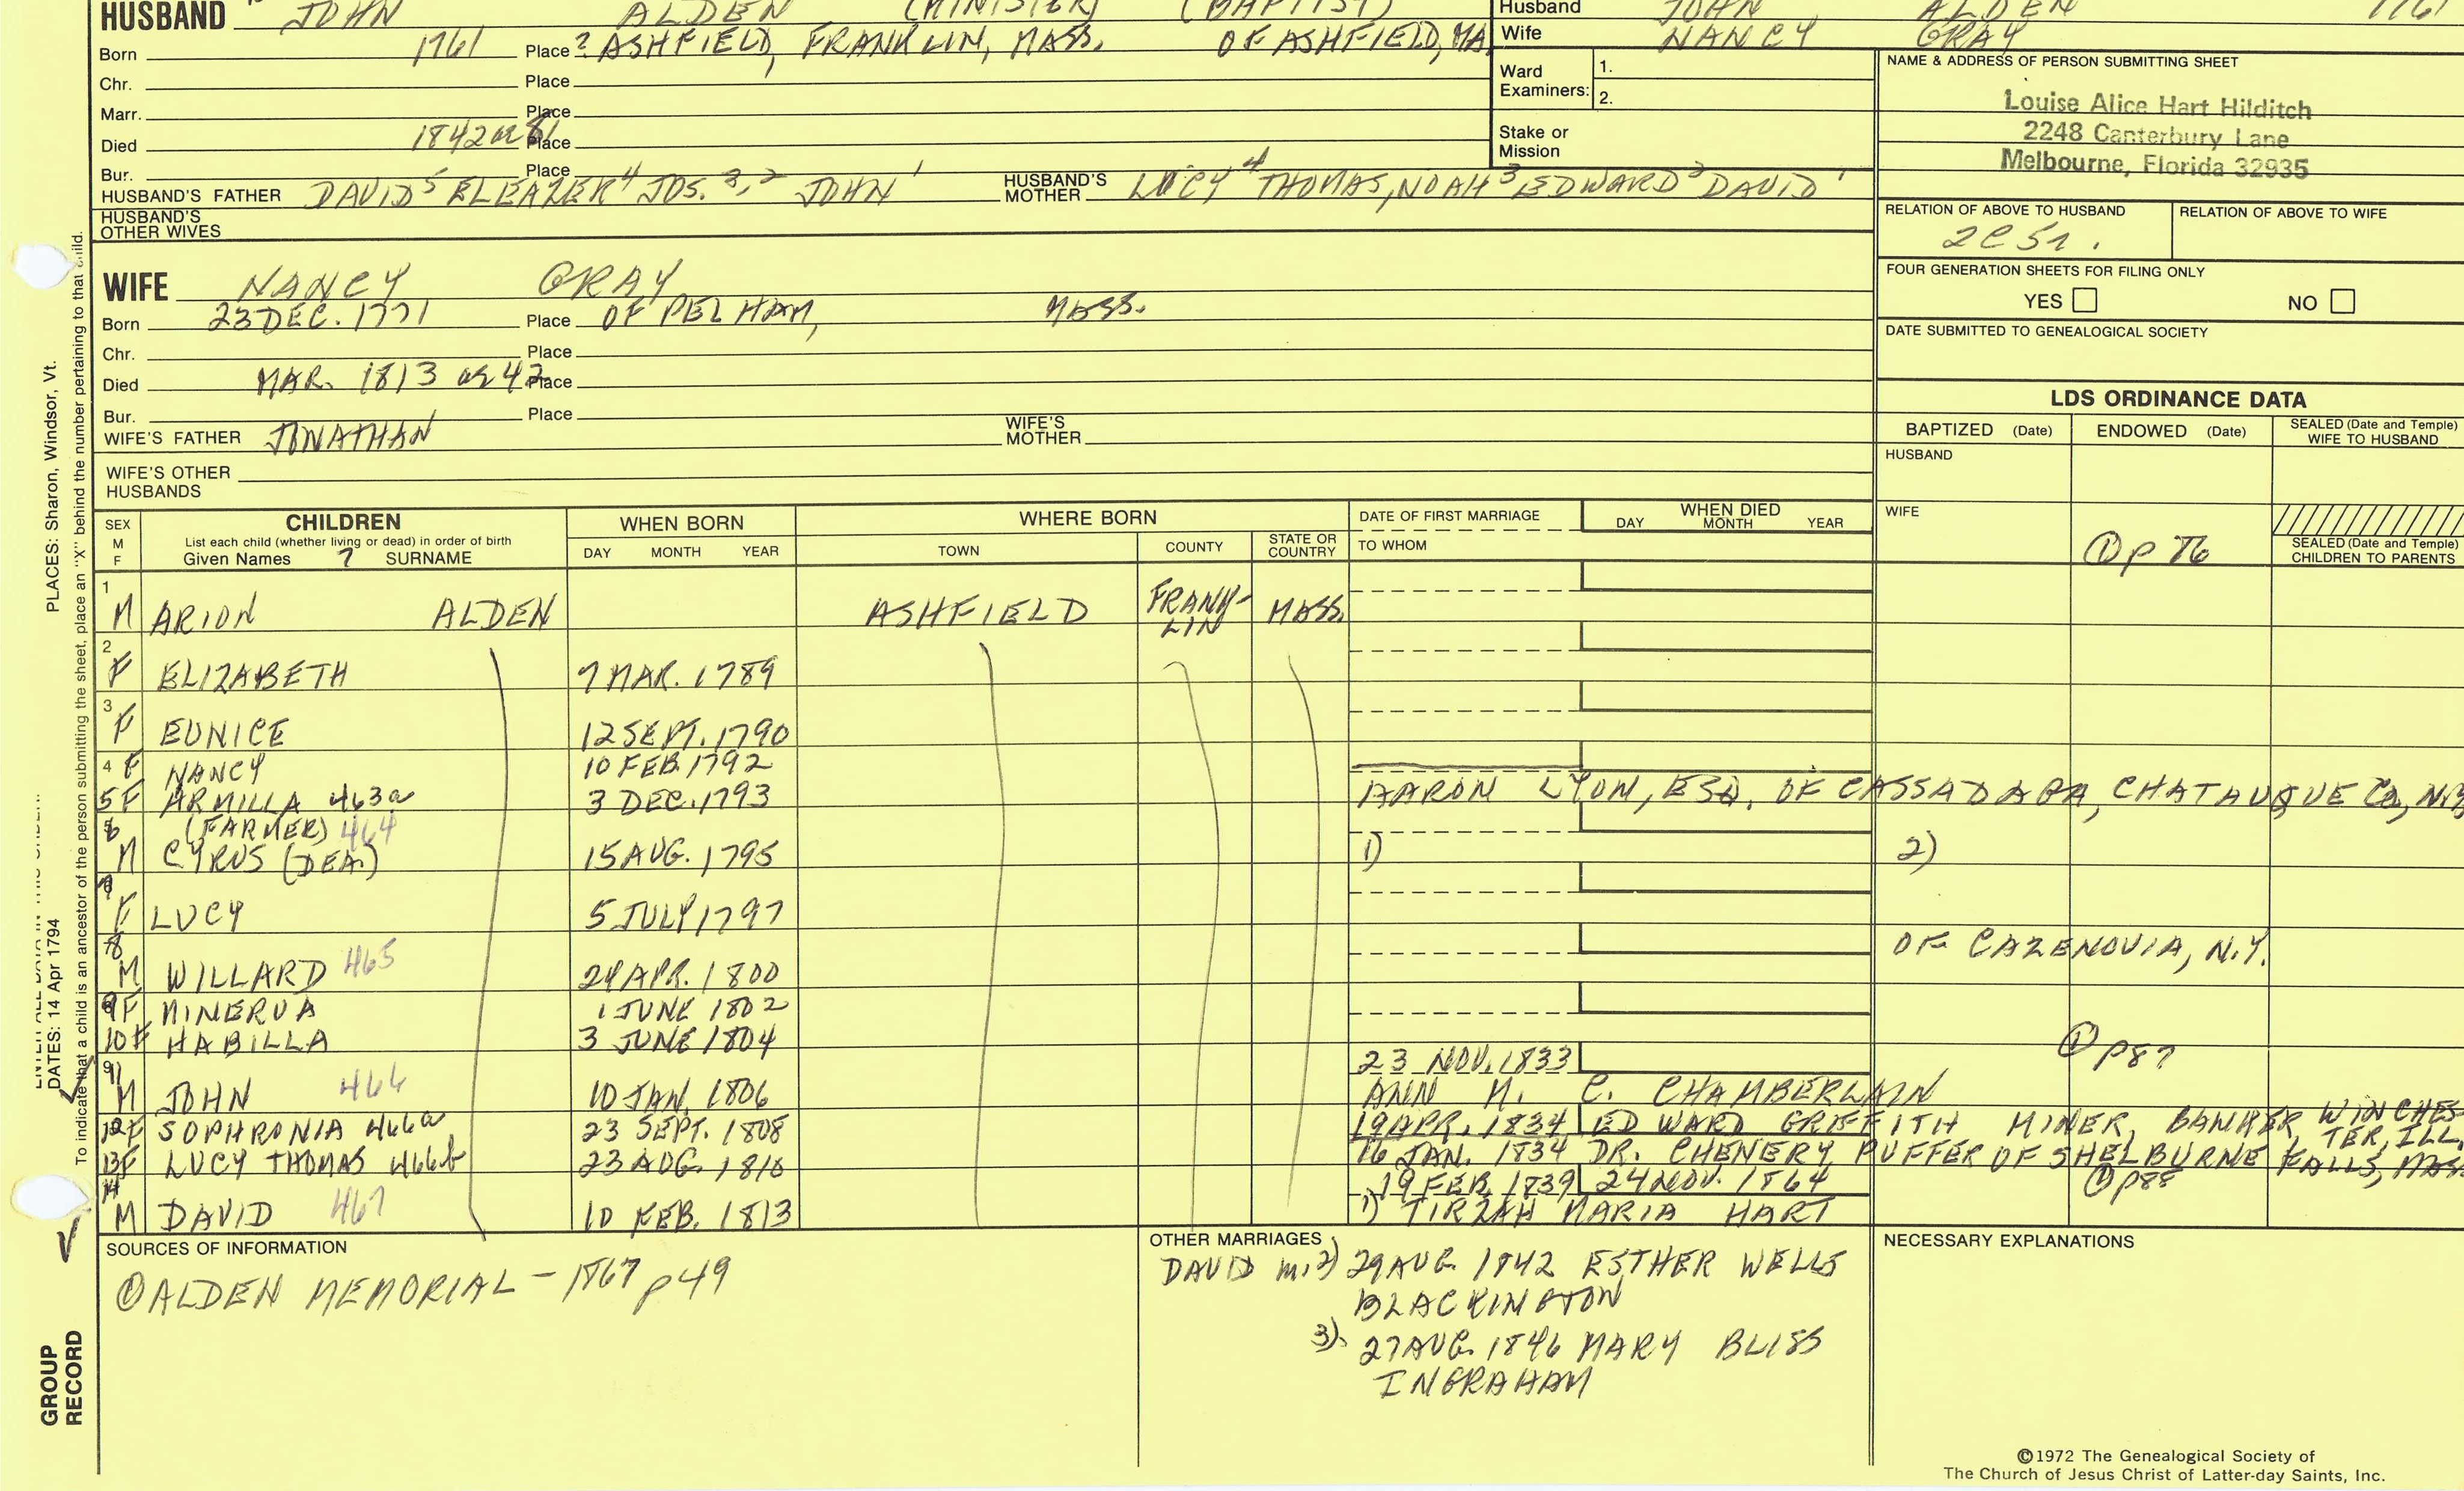 HUSBAND JOHN ALDEN (MINISTER) (BAPTIST)
Born 1761 Place ? ASHFIELD, FRANKLIN, MASS. OF ASHFIELD, MA
Chr. Place
Marr. Place
Died 1842 æ 81 Place
Bur. Place
HUSBAND'S FATHER DAVID⁵ ELEAZER⁴ JOS.³,² JOHN¹ HUSBAND'S MOTHER LUCY⁴ THOMAS, NOAH³ EDWARD² DAVID¹
HUSBAND'S OTHER WIVES
Husband JOHN ALDEN 1761
Wife NANCY GRAY
Ward Examiners: 1.
2.
Stake or Mission
NAME & ADDRESS OF PERSON SUBMITTING SHEET
Louise Alice Hart Hilditch
2248 Canterbury Lane
Melbourne, Florida 32935
RELATION OF ABOVE TO HUSBAND RELATION OF ABOVE TO WIFE
2C5r.
FOUR GENERATION SHEETS FOR FILING ONLY
YES NO
DATE SUBMITTED TO GENEALOGICAL SOCIETY
WIFE NANCY GRAY
Born 23 DEC. 1771 Place OF PELHAM, MASS.
Chr. Place
Died MAR. 1813 æ 42 Place
Bur. Place
WIFE'S FATHER JONATHAN WIFE'S MOTHER
WIFE'S OTHER HUSBANDS
LDS ORDINANCE DATA
BAPTIZED (Date) ENDOWED (Date) SEALED (Date and Temple) WIFE TO HUSBAND
HUSBAND
WIFE
① p 76
SEALED (Date and Temple) CHILDREN TO PARENTS
SEX M F CHILDREN WHEN BORN WHERE BORN DATE OF FIRST MARRIAGE WHEN DIED
List each child (whether living or dead) in order of birth
Given Names ? SURNAME DAY MONTH YEAR TOWN COUNTY STATE OR COUNTRY TO WHOM DAY MONTH YEAR
1 M ARION ALDEN ASHFIELD FRANK-LIN MASS.
2 F ELIZABETH 7 MAR. 1789
3 F EUNICE 12 SEPT. 1790
4 F NANCY 10 FEB. 1792
5 F ARMILLA 463a 3 DEC. 1793 AARON LYON, ESQ. OF CASSADAGA, CHATAUQUE Co, N.Y
6 (FARMER) 464
M CYRUS (DEA.) 15 AUG. 1795 1) 2)
7 F LUCY 5 JULY 1797
8 M WILLARD 465 24 APR. 1800 OF CAZENOVIA, N.Y.
9 F MINERVA 1 JUNE 1802
10 F HABILLA 3 JUNE 1804
23 NOV. 1833 ① p87
11 M JOHN 466 10 JAN. 1806 ANN M. C. CHAMBERLAIN
12 F SOPHRONIA 466a 23 SEPT. 1808 19 APR. 1834 EDWARD GRIFFITH MINER, BANKER WINCHES-TER, ILL.
13 F LUCY THOMAS 466b 23 AUG. 1810 16 JAN. 1834 DR. CHENERY PUFFER OF SHELBURNE FALLS, MASS
14 19 FEB. 1839 24 NOV. 1864 ① p88
M DAVID 467 10 FEB. 1813 1) TIRZAH MARIA HART
SOURCES OF INFORMATION
① ALDEN MEMORIAL - 1867 p 49
OTHER MARRIAGES
DAVID m. 2) 29 AUG. 1842 ESTHER WELLS
BLACKINGTON
3) 27 AUG. 1846 MARY BLISS
INGRAHAM
NECESSARY EXPLANATIONS
©1972 The Genealogical Society of
The Church of Jesus Christ of Latter-day Saints, Inc.
PLACES: Sharon, Windsor, Vt.
DATES: 14 Apr 1794
To indicate that a child is an ancestor of the person submitting the sheet, place an "X" behind the number pertaining to that child.
GROUP RECORD